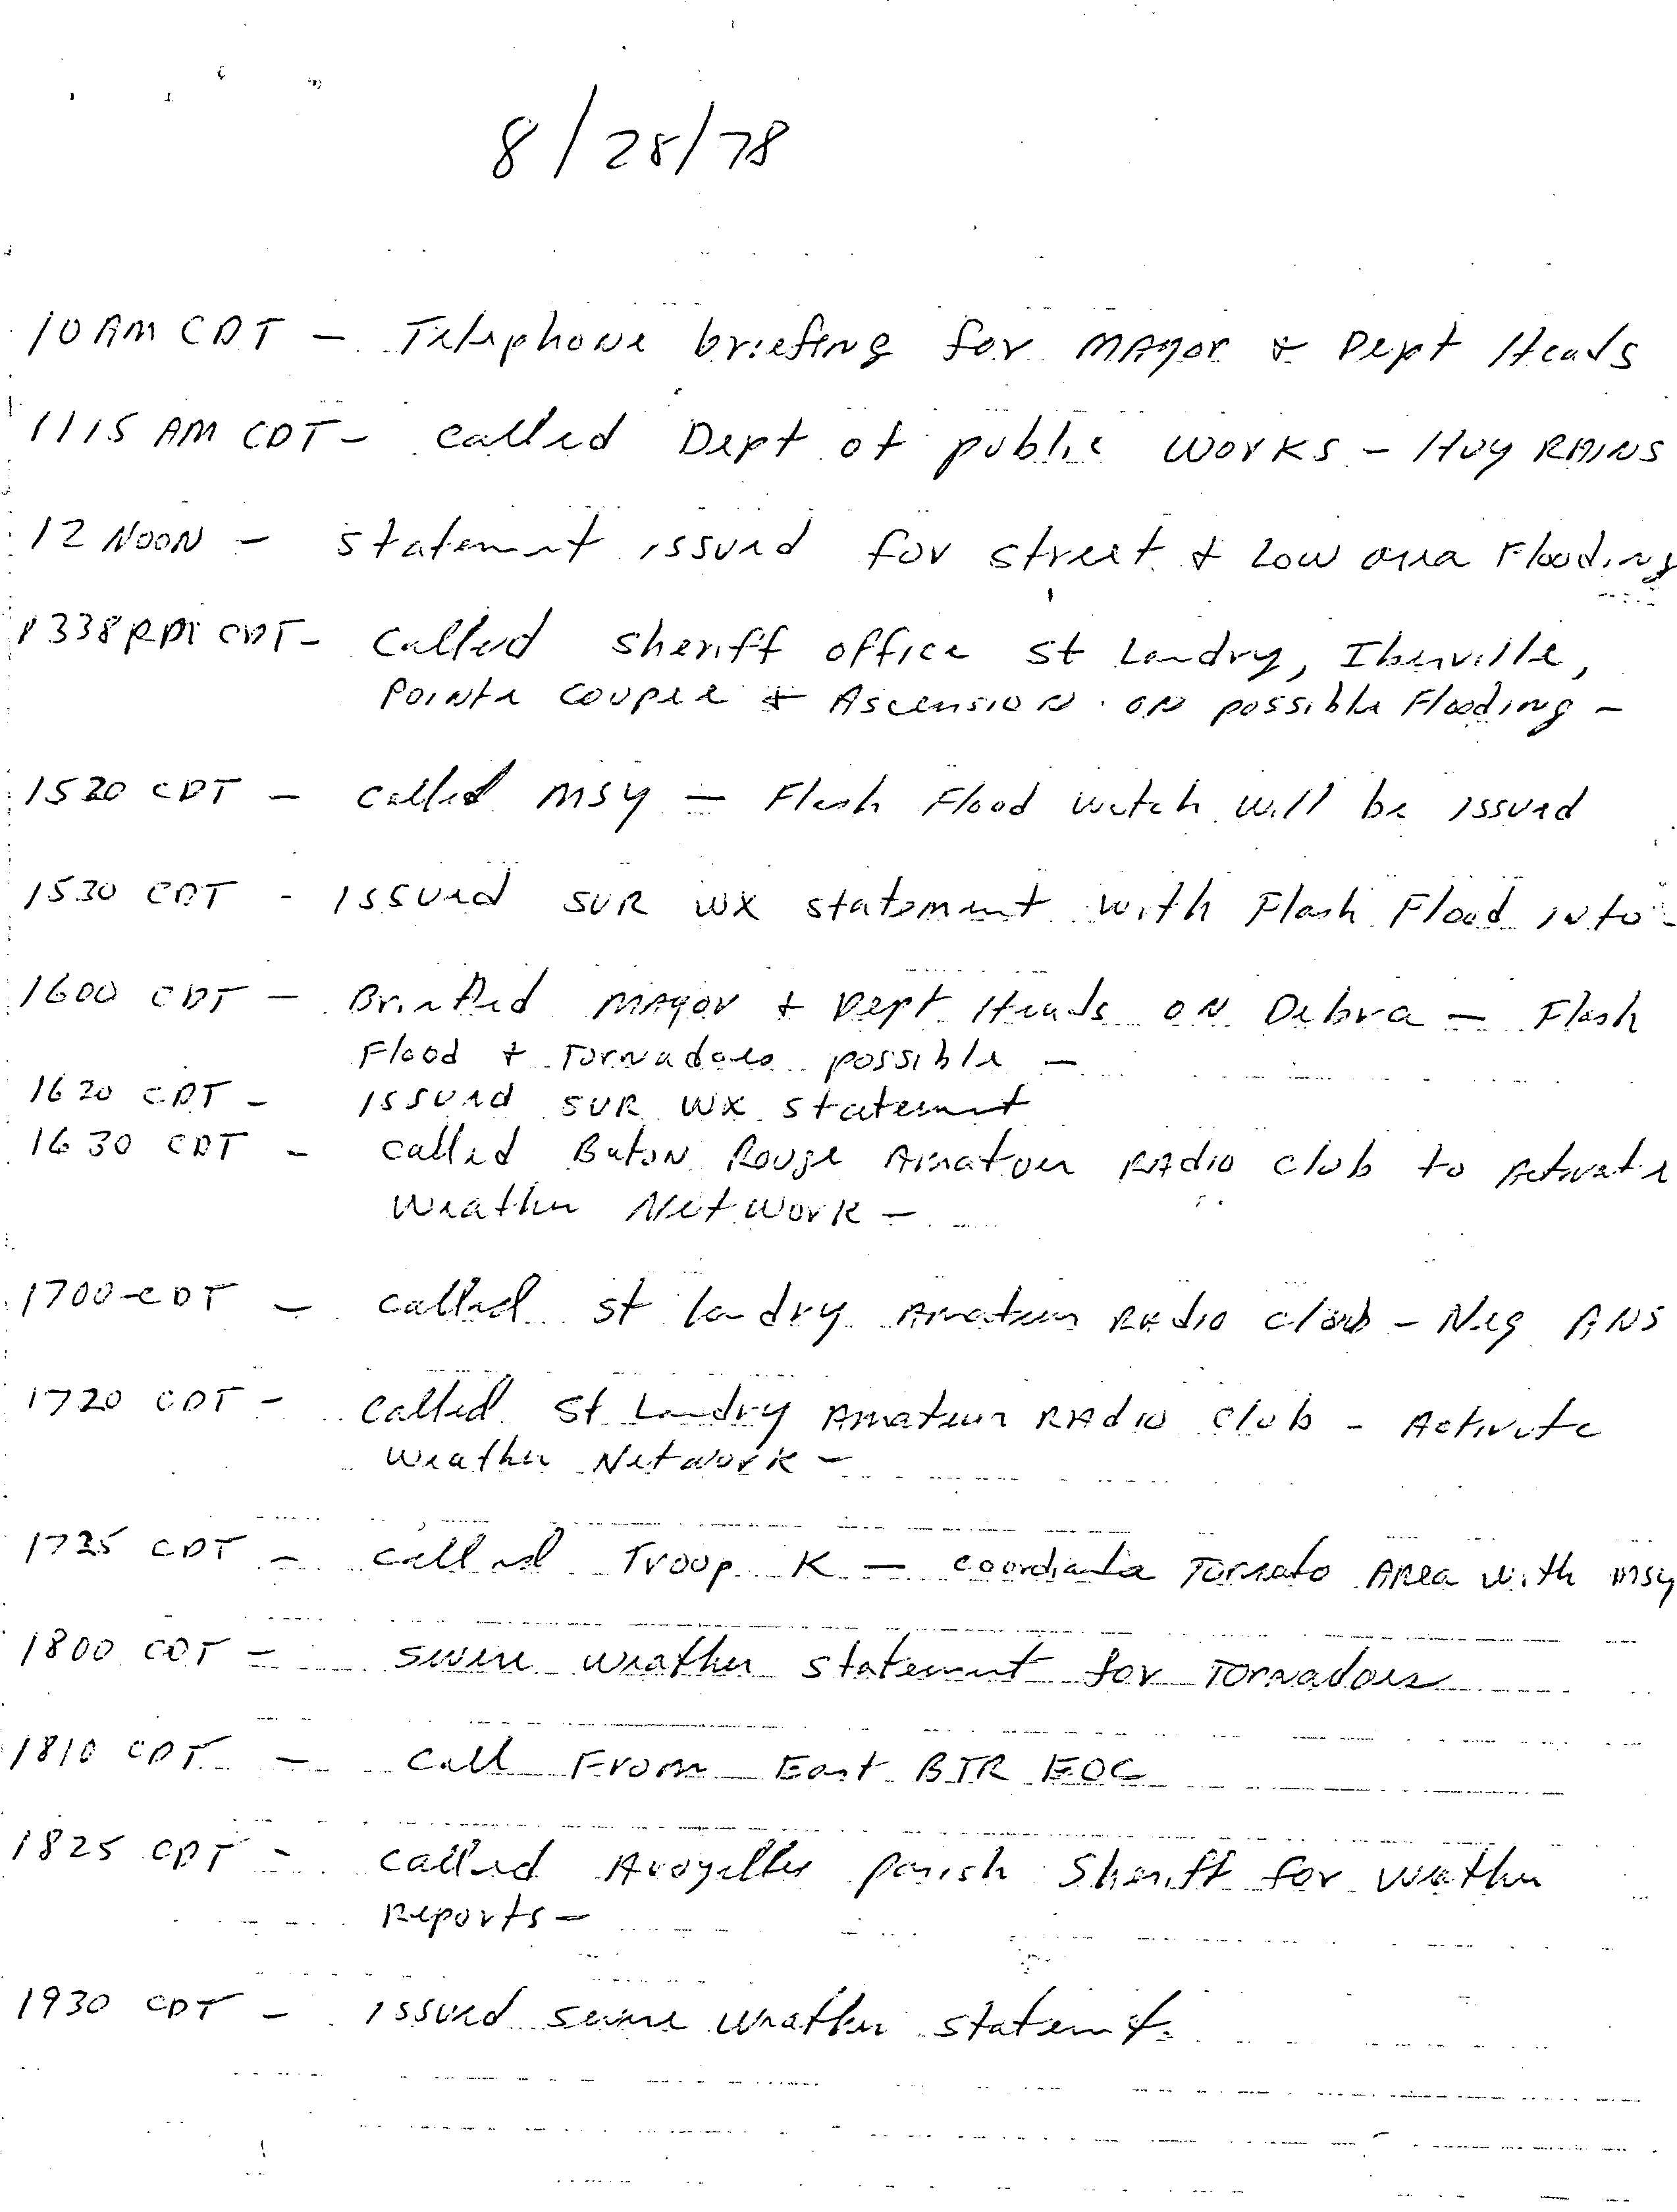 8/28/78
10 AM CDT - Telephone briefing for MAyor & Dept Heads
1115 AM CDT - called Dept of public works - Hvy RAINS
12 NOON - statement issued for street & Low area Flooding
1338 CDT - Called sheriff office St Landry, Iberville,
Pointe Coupee & Ascension on possible Flooding -
1520 CDT - called MSY - Flash Flood watch will be issued
1530 CDT - issued SVR WX statement with Flash Flood info -
1600 CDT - Briefed MAyor & Dept Heads on Debra - Flash
Flood & Tornadoes possible -
1620 CDT - issued SVR WX statement
1630 CDT - called Baton Rouge Amateur RAdio club to Activate
weather Network -
1700 CDT - called St Landry Amateur RAdio club - Neg ANS
1720 CDT - called St Landry Amateur RAdio club - Activate
weather Network -
1725 CDT - called Troop K - coordiante Tornato Area with MSY
1800 CDT - severe weather statement for Tornadoes
1810 CDT - call From East BTR EOC
1825 CDT - called Avoyelles parish Sheriff for weather
Reports -
1930 CDT - issued severe weather statemt.